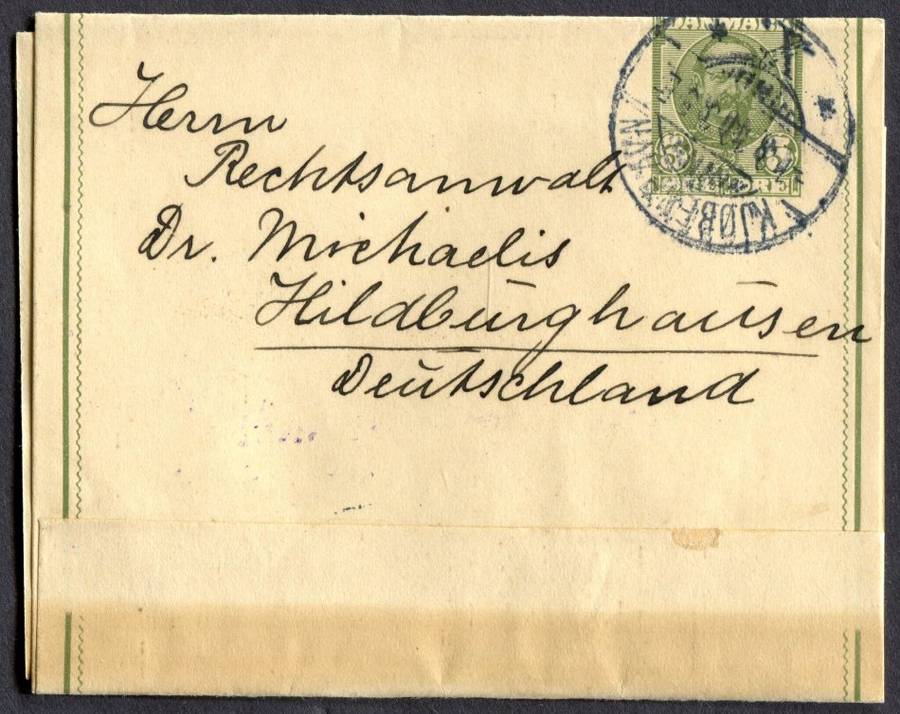 DANMARK
KJØBENHAVN
Herrn
Rechtsanwalt
Dr. Michaelis
Hildburghausen
Deutschland